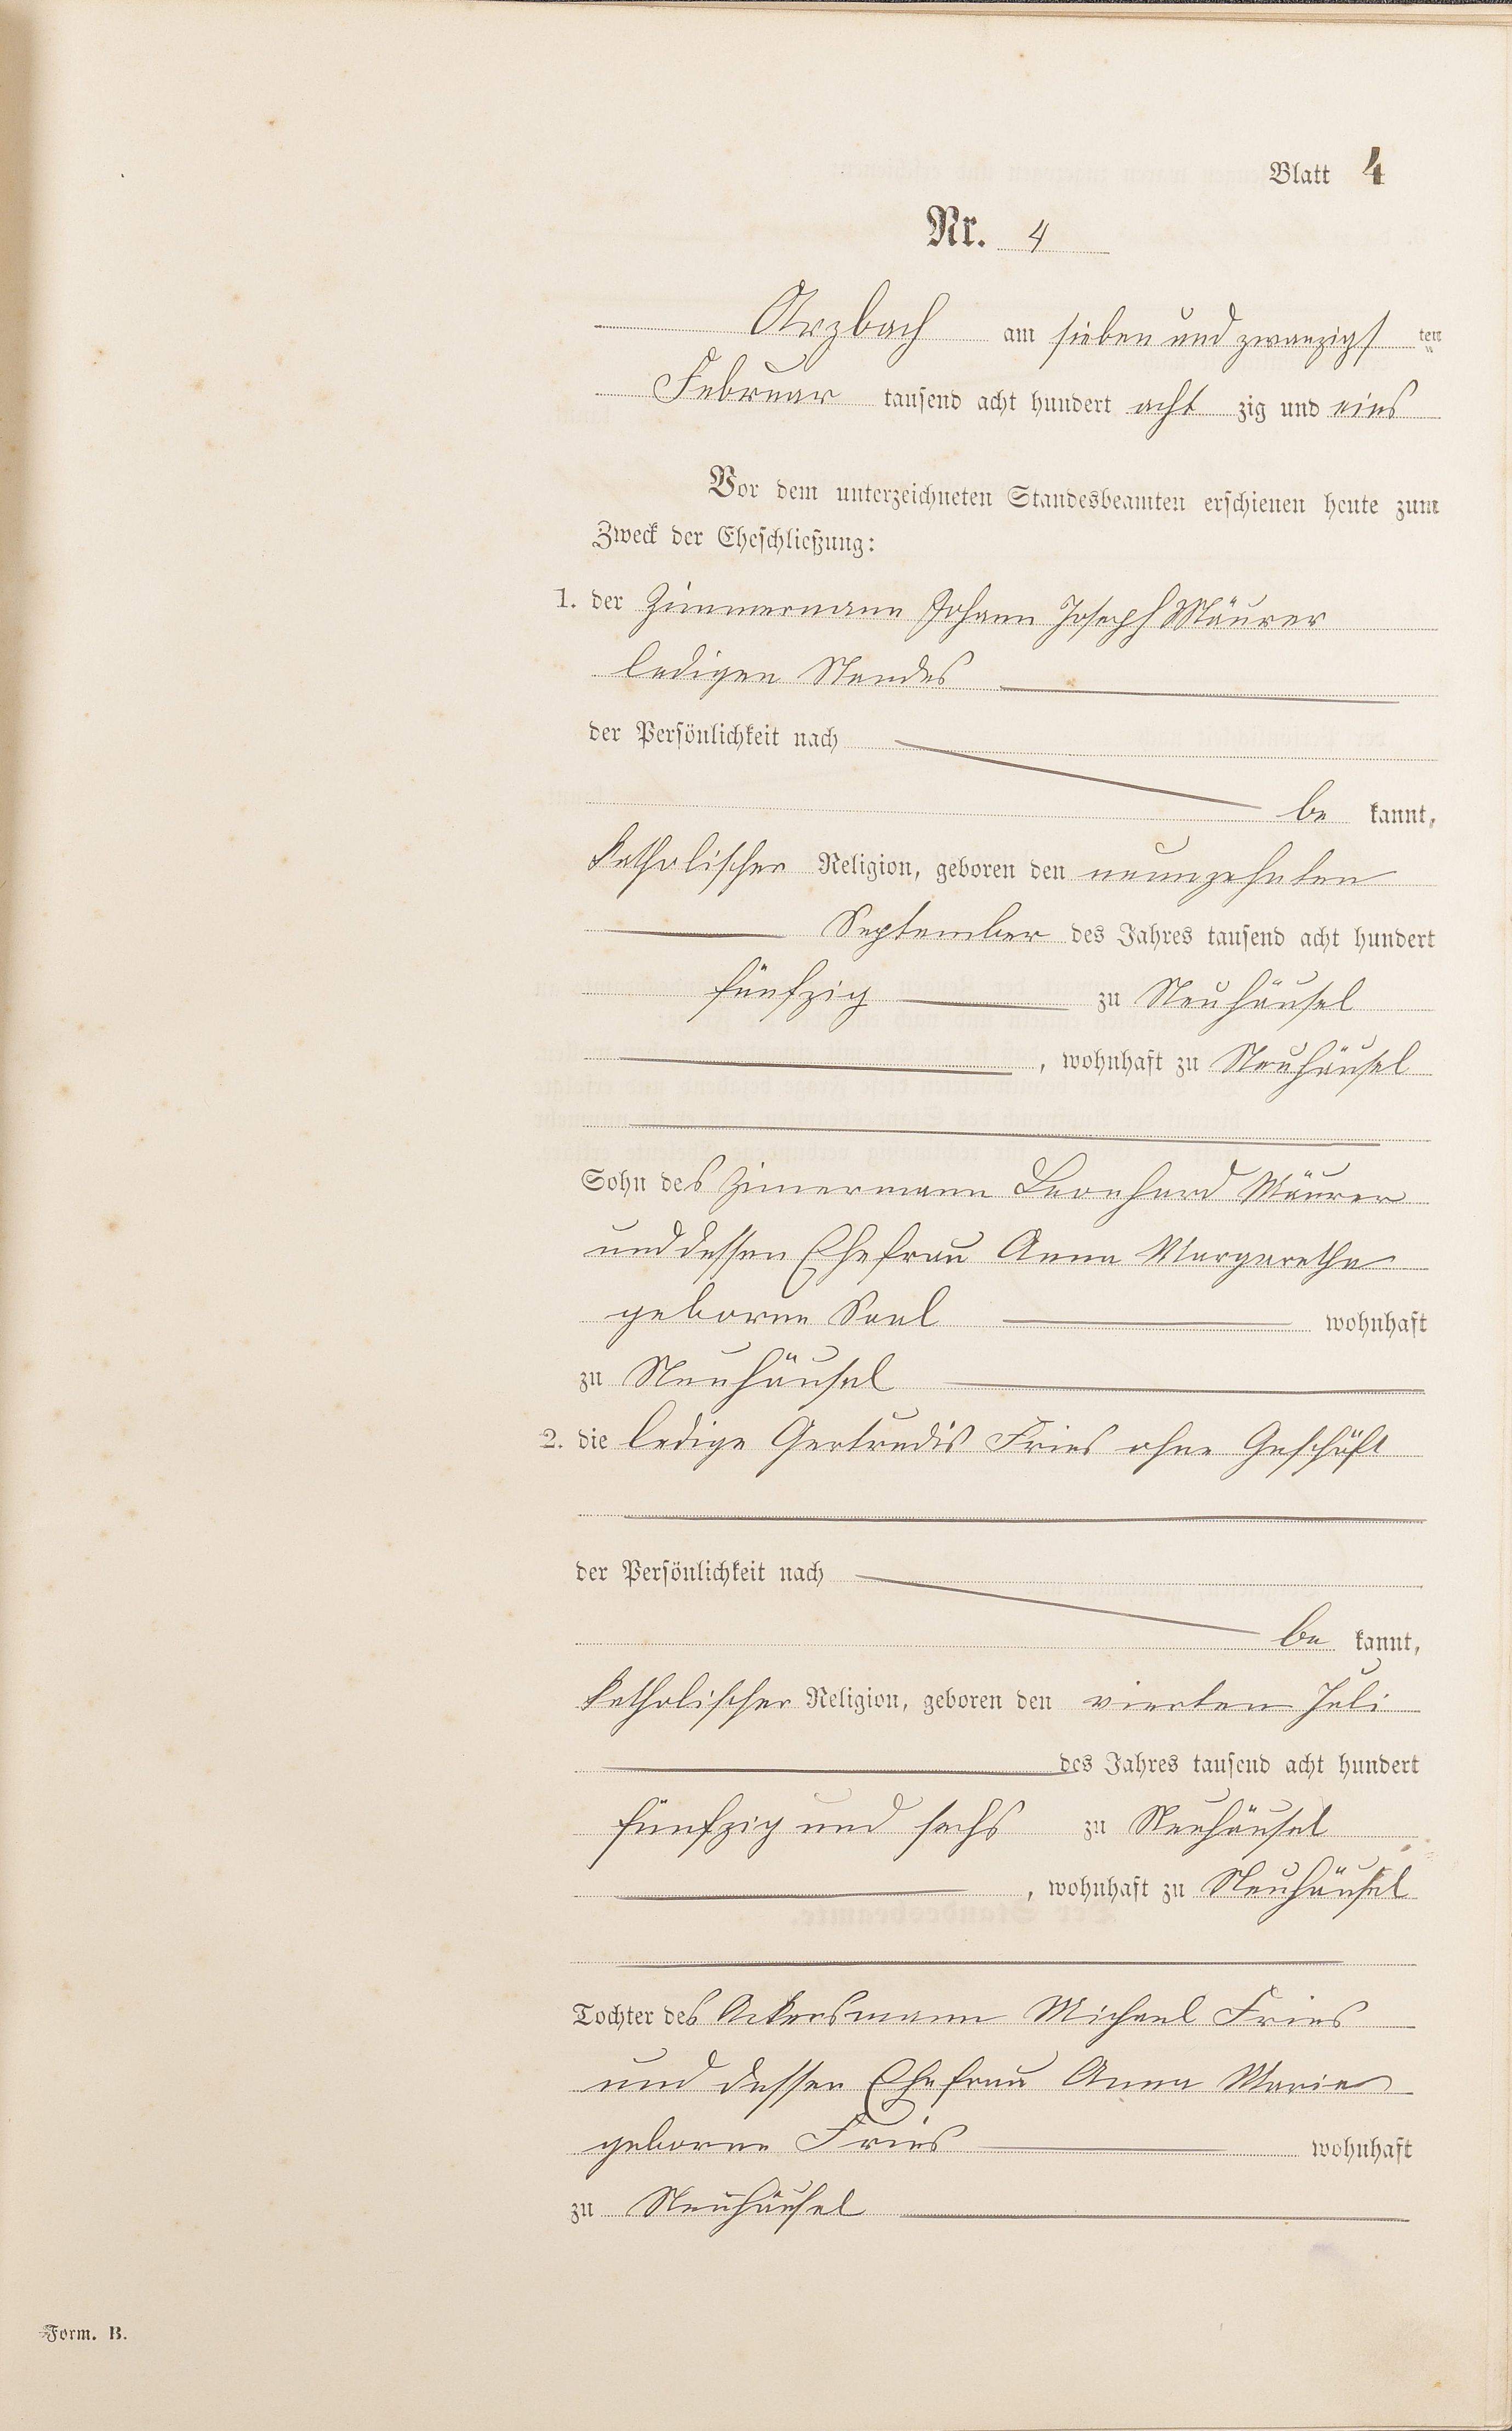 Blatt 4
Nr. 4
Arzbach am sieben und zwanzigsten
Februar tausend acht hundert acht zig und eins
Vor dem unterzeichneten Standesbeamten erschienen heute zum
Zweck der Eheschließung:
1. der Zimmermann Johann Joseph Mäurer
ledigen Standes
der Persönlichkeit nach
be kannt,
katholischer Religion, geboren den neunzehnten
September des Jahres tausend acht hundert
fünfzig zu Neuhäusel
, wohnhaft zu Neuhäusel
Sohn des Zimermann Leonhard Mäurer
und dessen Ehefrau Anna Margarethe
geborne Saal wohnhaft
zu Neuhäusel
2. die ledige Gertrudis Fries ohne Geschäft
der Persönlichkeit nach
be kannt,
katholischer Religion, geboren den vierten Juli
des Jahres tausend acht hundert
fünfzig und sechs zu Neuhäusel
, wohnhaft zu Neuhäusel
Tochter des Ackersmann Michael Fries
und dessen Ehefrau Anna Maria
geborne Fries wohnhaft
zu Neuhäusel
Form. B.